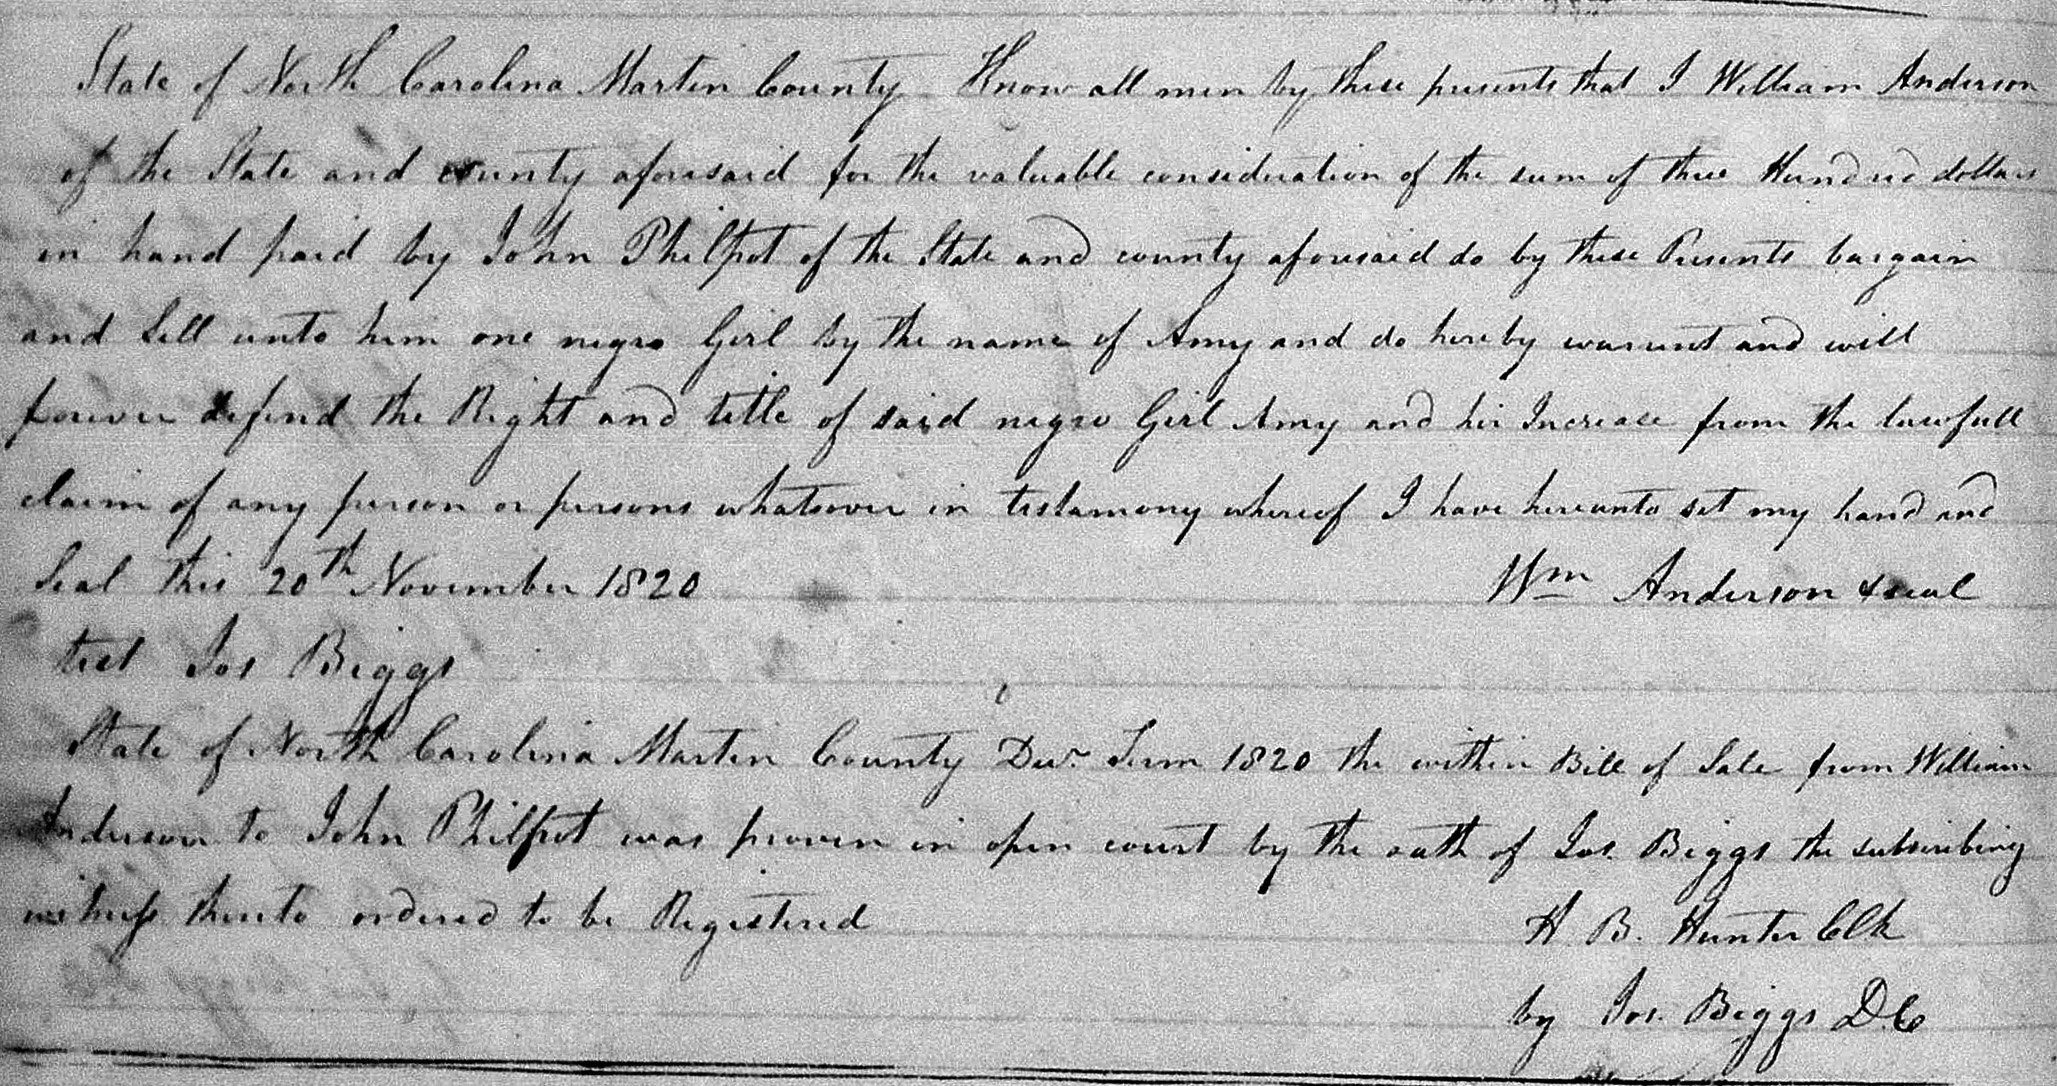 State of North Carolina Martin County Know all men by these presents that I William Anderson
of the State and county aforesaid for the valuable consideration of the sum of three Hundred dollars
in hand paid by John Philpot of the State and county aforesaid do by these Presents bargain
and Sell unto him one negro Girl by the name of Amy and do hereby warrent and will
forever defend the Right and title of said negro Girl Amy and hir Increase from the lawfull
claim of any person or persons whatsover in testamony whereof I have hereunto set my hand and
Seal this 20th November 1820 Wm Anderson seal
test Jos Biggs
State of North Carolina Martin County Decr Term 1820 the within Bill of Sale from William
Anderson to John Philpot was proven in open court by the oath of Jos. Biggs the subscribing
witness thereto ordered to be Registered H. B. Hunter Clk
by Jos. Biggs D.C